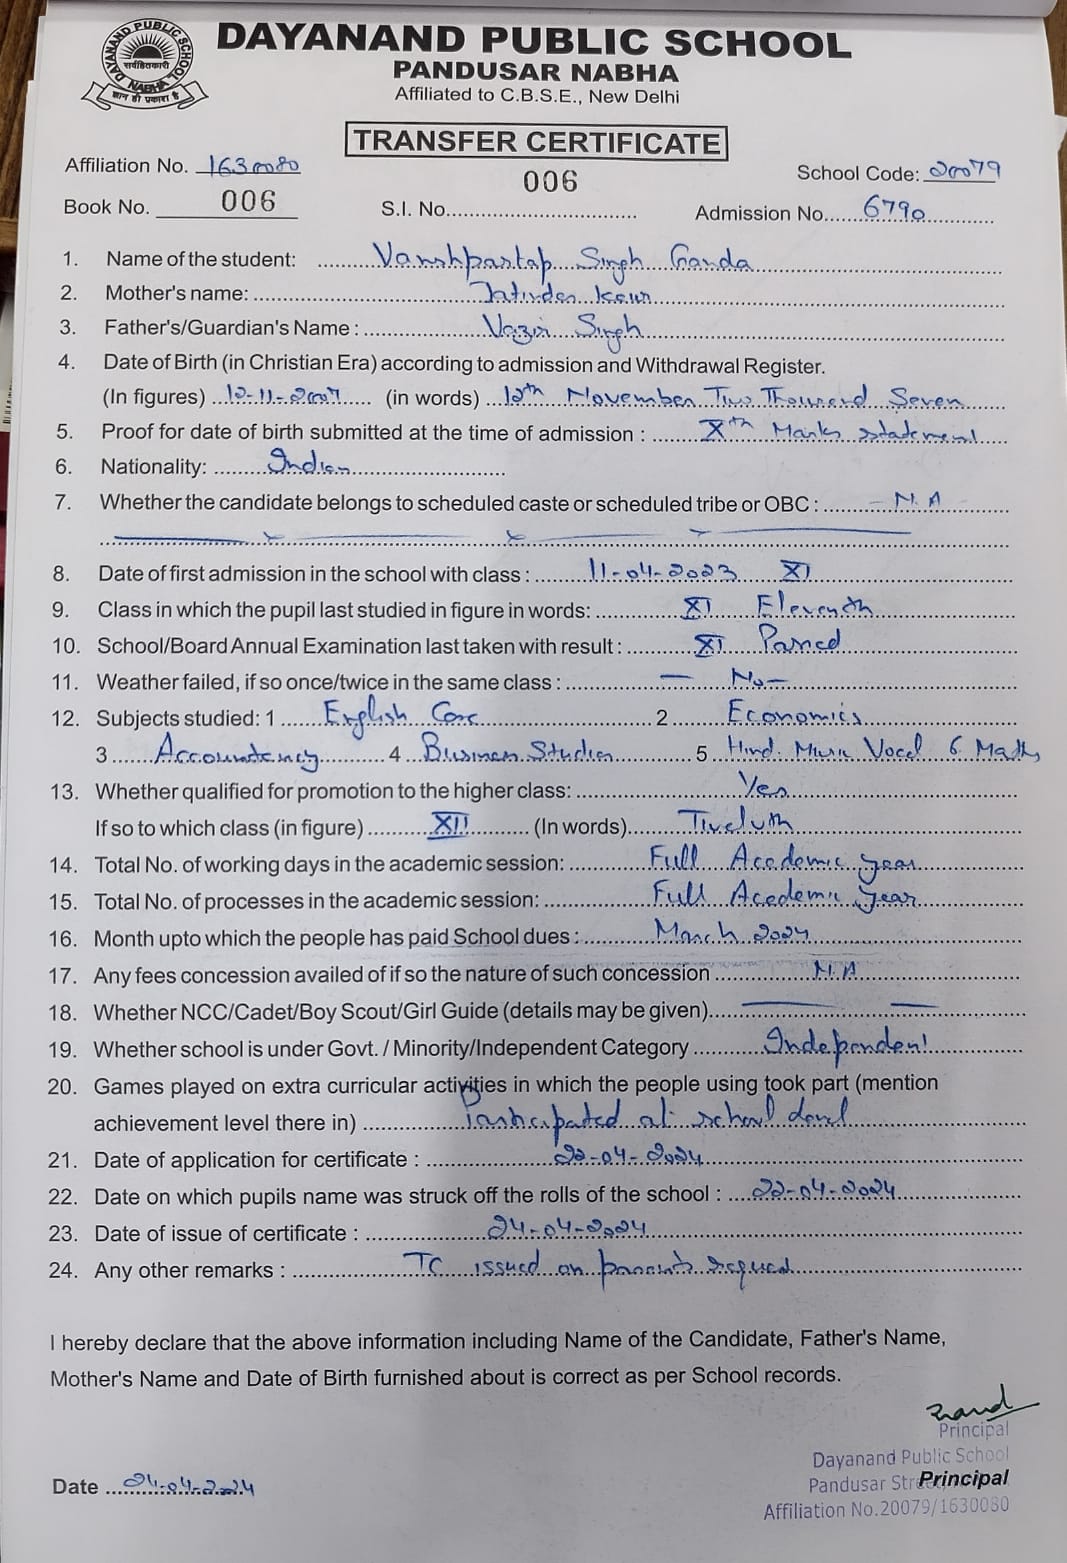 DAYANAND PUBLIC SCHOOL NABHA
सर्वहितकारी
ज्ञान ही प्रकाश है
DAYANAND PUBLIC SCHOOL
PANDUSAR NABHA
Affiliated to C.B.S.E., New Delhi
TRANSFER CERTIFICATE
Affiliation No. 1630080
006
School Code: 20079
Book No. 006
S.I. No.
Admission No. 6790
1. Name of the student: Vanshpartap Singh Ganda
2. Mother's name: Jatinder Kaur
3. Father's/Guardian's Name : Vazir Singh
4. Date of Birth (in Christian Era) according to admission and Withdrawal Register.
(In figures) 12-11-2007 (in words) 12th November Two Thousand Seven
5. Proof for date of birth submitted at the time of admission : Xth Marks statement
6. Nationality: Indian
7. Whether the candidate belongs to scheduled caste or scheduled tribe or OBC : - N.A
8. Date of first admission in the school with class : 11-04-2023 XI
9. Class in which the pupil last studied in figure in words: XI Eleventh
10. School/Board Annual Examination last taken with result : XI Passed
11. Weather failed, if so once/twice in the same class : — No —
12. Subjects studied: 1 English Core 2 Economics
3 Accountancy 4 Business Studies 5 Hind. Music Vocal 6. Maths
13. Whether qualified for promotion to the higher class: Yes
If so to which class (in figure) XII (In words) Twelvth
14. Total No. of working days in the academic session: Full Academic year
15. Total No. of processes in the academic session: Full Academic year
16. Month upto which the people has paid School dues : March 2024
17. Any fees concession availed of if so the nature of such concession N.A
18. Whether NCC/Cadet/Boy Scout/Girl Guide (details may be given)
19. Whether school is under Govt. / Minority/Independent Category Independent
20. Games played on extra curricular activities in which the people using took part (mention
achievement level there in) Participated at school level
21. Date of application for certificate : 22-04-2024
22. Date on which pupils name was struck off the rolls of the school : 22-04-2024
23. Date of issue of certificate : 24-04-2024
24. Any other remarks : TC issued on parents request
I hereby declare that the above information including Name of the Candidate, Father's Name,
Mother's Name and Date of Birth furnished about is correct as per School records.
Principal
Dayanand Public School
Date 24-04-2024
Pandusar Principal
Affiliation No.20079/1630080